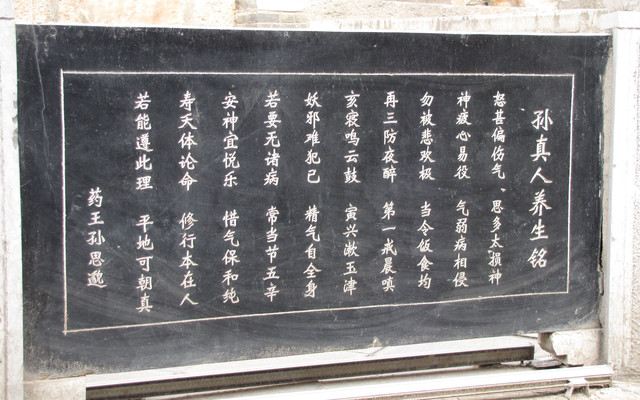 孙真人养生铭
怒甚偏伤气、思多太损神
神疲心易役 气弱病相侵
勿被悲欢极 当令饭食均
再三防夜醉 第一戒晨嗔
亥寝鸣云鼓 寅兴漱玉津
妖邪难犯己 精气自全身
若要无诸病 常当节五辛
安神宜悦乐 惜气保和纯
寿夭休论命 修行本在人
若能遵此理 平地可朝真
药王孙思邈